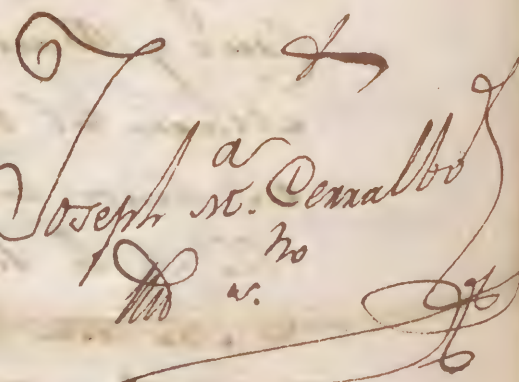 Joseph M.ª Cerralbo
no